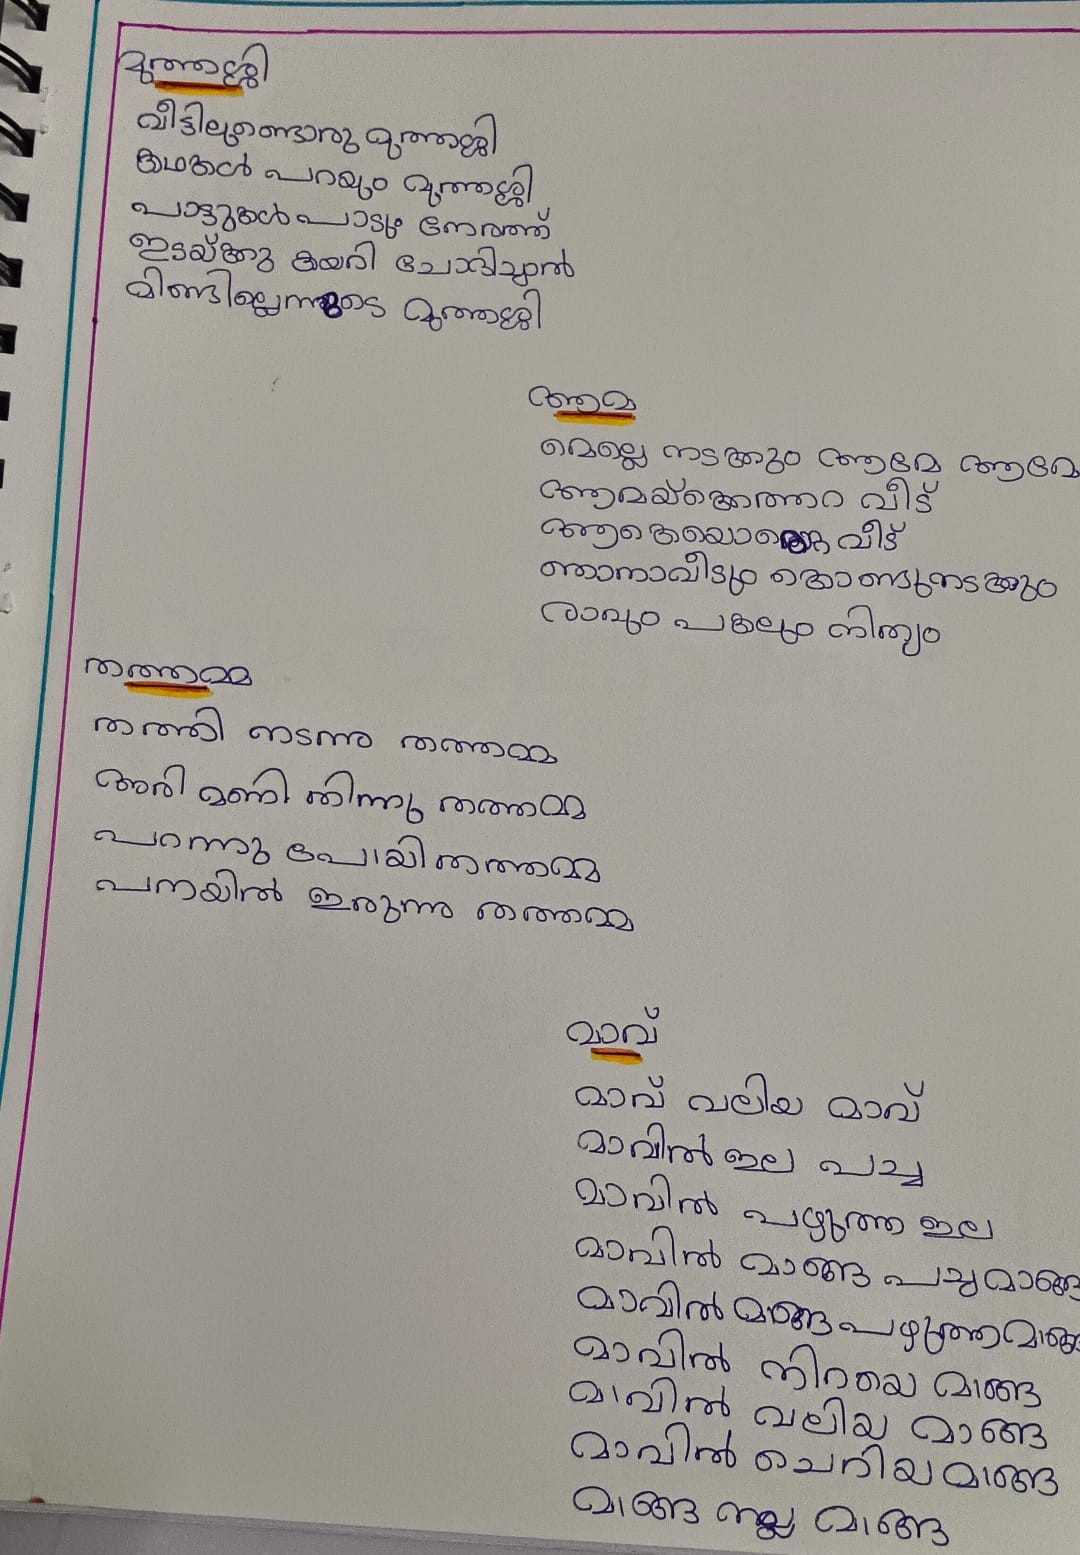 മുത്തശ്ശി
വീട്ടിലുണ്ടൊരു മുത്തശ്ശി
കഥകൾ പറയും മുത്തശ്ശി
പാട്ടുകൾ പാടും നേരത്ത്
ഇടയ്ക്കു കയറി ചോദിച്ചാൽ
മിണ്ടില്ലെന്നുടെ മുത്തശ്ശി
ആമ
മെല്ലെ നടക്കും ആമേ ആമേ
ആമയ്ക്കെത്തറ വീട്
ആകെയൊരു വീട്
ഞാനാവീടും കൊണ്ടുനടക്കും
രാവും പകലും നിത്യം
തത്തമ്മ
തത്തി നടന്നു തത്തമ്മ
അരി മണി തിന്നു തത്തമ്മ
പറന്നു പോയി തത്തമ്മ
പനയിൽ ഇരുന്നു തത്തമ്മ
മാവ്
മാവ് വലിയ മാവ്
മാവിൽ ഇല പച്ച
മാവിൽ പഴുത്ത ഇല
മാവിൽ മാങ്ങ പച്ചമാങ്ങ
മാവിൽ മാങ്ങ പഴുത്തമാങ്ങ
മാവിൽ നിറയെ മാങ്ങ
മാവിൽ വലിയ മാങ്ങ
മാവിൽ ചെറിയ മാങ്ങ
മാങ്ങ നല്ല മാങ്ങ